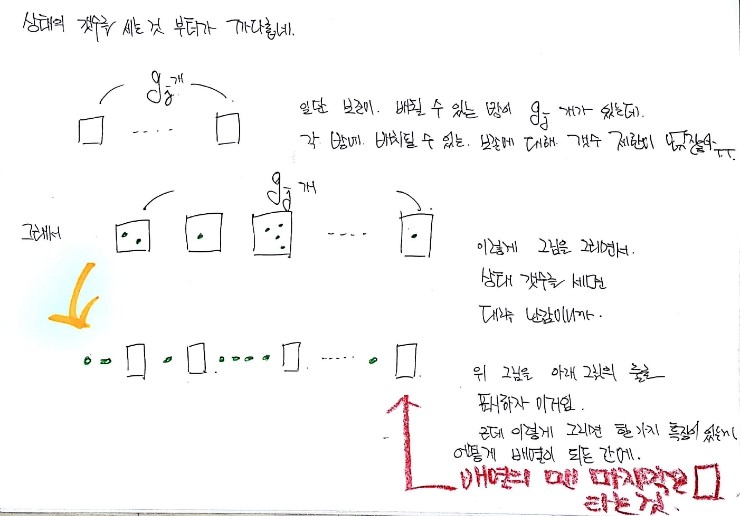 상태의 갯수를 세는 것 부터가 까다롭네.
gj 개
일단 보존이. 배치될 수 있는 방이 gj 개가 있는데.
각 방에. 배치될 수 있는. 보존에 대해 갯수 제한이 ㅠㅠ.
gj 개
그래서
이렇게 그림을 그리면서.
상태 갯수를 세면
대략 난감이니까.
위 그림을 아래 그림의 룰로
표시하자 이거임.
근데 이렇게 그리면 한가지 특징이 있는데
어떻게 배열이 되든 간에.
배열의 맨 마지막은 □
라는 것.